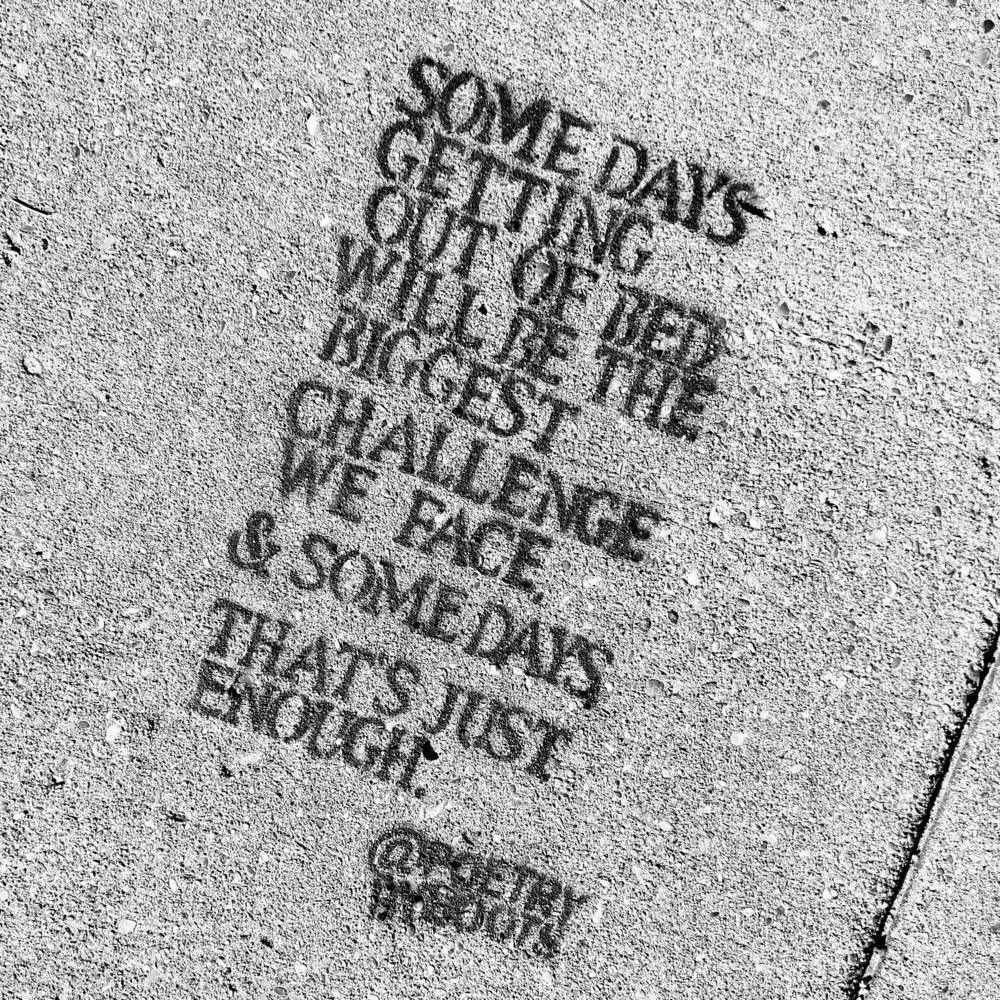 SOME DAYS
GETTING
OUT OF BED
WILL BE THE
BIGGEST
CHALLENGE
WE FACE.
& SOME DAYS
THAT'S JUST
ENOUGH.
@POETRY